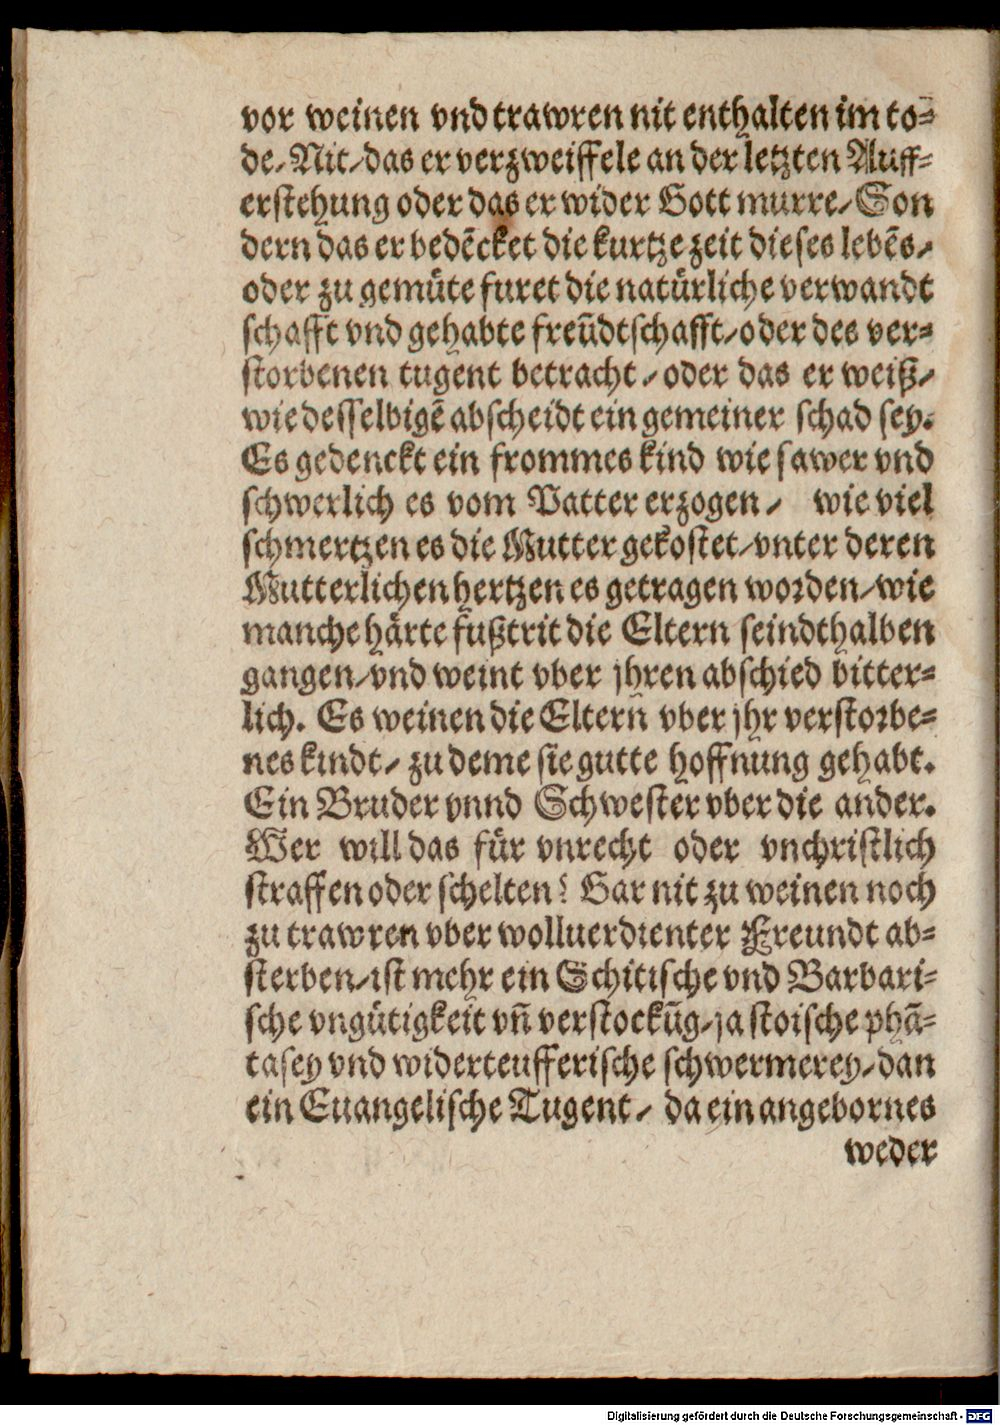 vor weinen vnd trawren nit enthalten im to-
de/ Nit/ das er verzweiffele an der letzten Auff-
erstehung oder das er wider Gott murre/ Son
dern das er bedẽcket die kurtze zeit dieses lebẽs/
oder zu gemüte furet die natürliche verwandt
schafft vnd gehabte freũdtschafft/ oder des ver-
storbenen tugent betracht/ oder das er weiß/
wie desselbigẽ abscheidt ein gemeiner schad sey.
Es gedenckt ein frommes kind wie sawer vnd
schwerlich es vom Vatter erzogen/ wie viel
schmertzen es die Mutter gekostet/ vnter deren
Mutterlichen hertzen es getragen worden/ wie
manche härte fußtrit die Eltern seindthalben
gangen/ vnd weint vber jhren abschied bitter-
lich. Es weinen die Eltern vber jhr verstorbe-
nes kindt/ zu deme sie gutte hoffnung gehabt.
Ein Bruder vnnd Schwester vber die ander.
Wer will das für vnrecht oder vnchristlich
straffen oder schelten? Gar nit zu weinen noch
zu trawren vber wolluerdienter Freundt ab-
sterben/ ist mehr ein Schitische vnd Barbari-
sche vngütigkeit vñ verstockũg/ ja stoische phã-
tasey vnd widerteufferische schwermerey/ dan
ein Euangelische Tugent/ da ein angebornes
weder
Digitalisierung gefördert durch die Deutsche Forschungsgemeinschaft - DFG